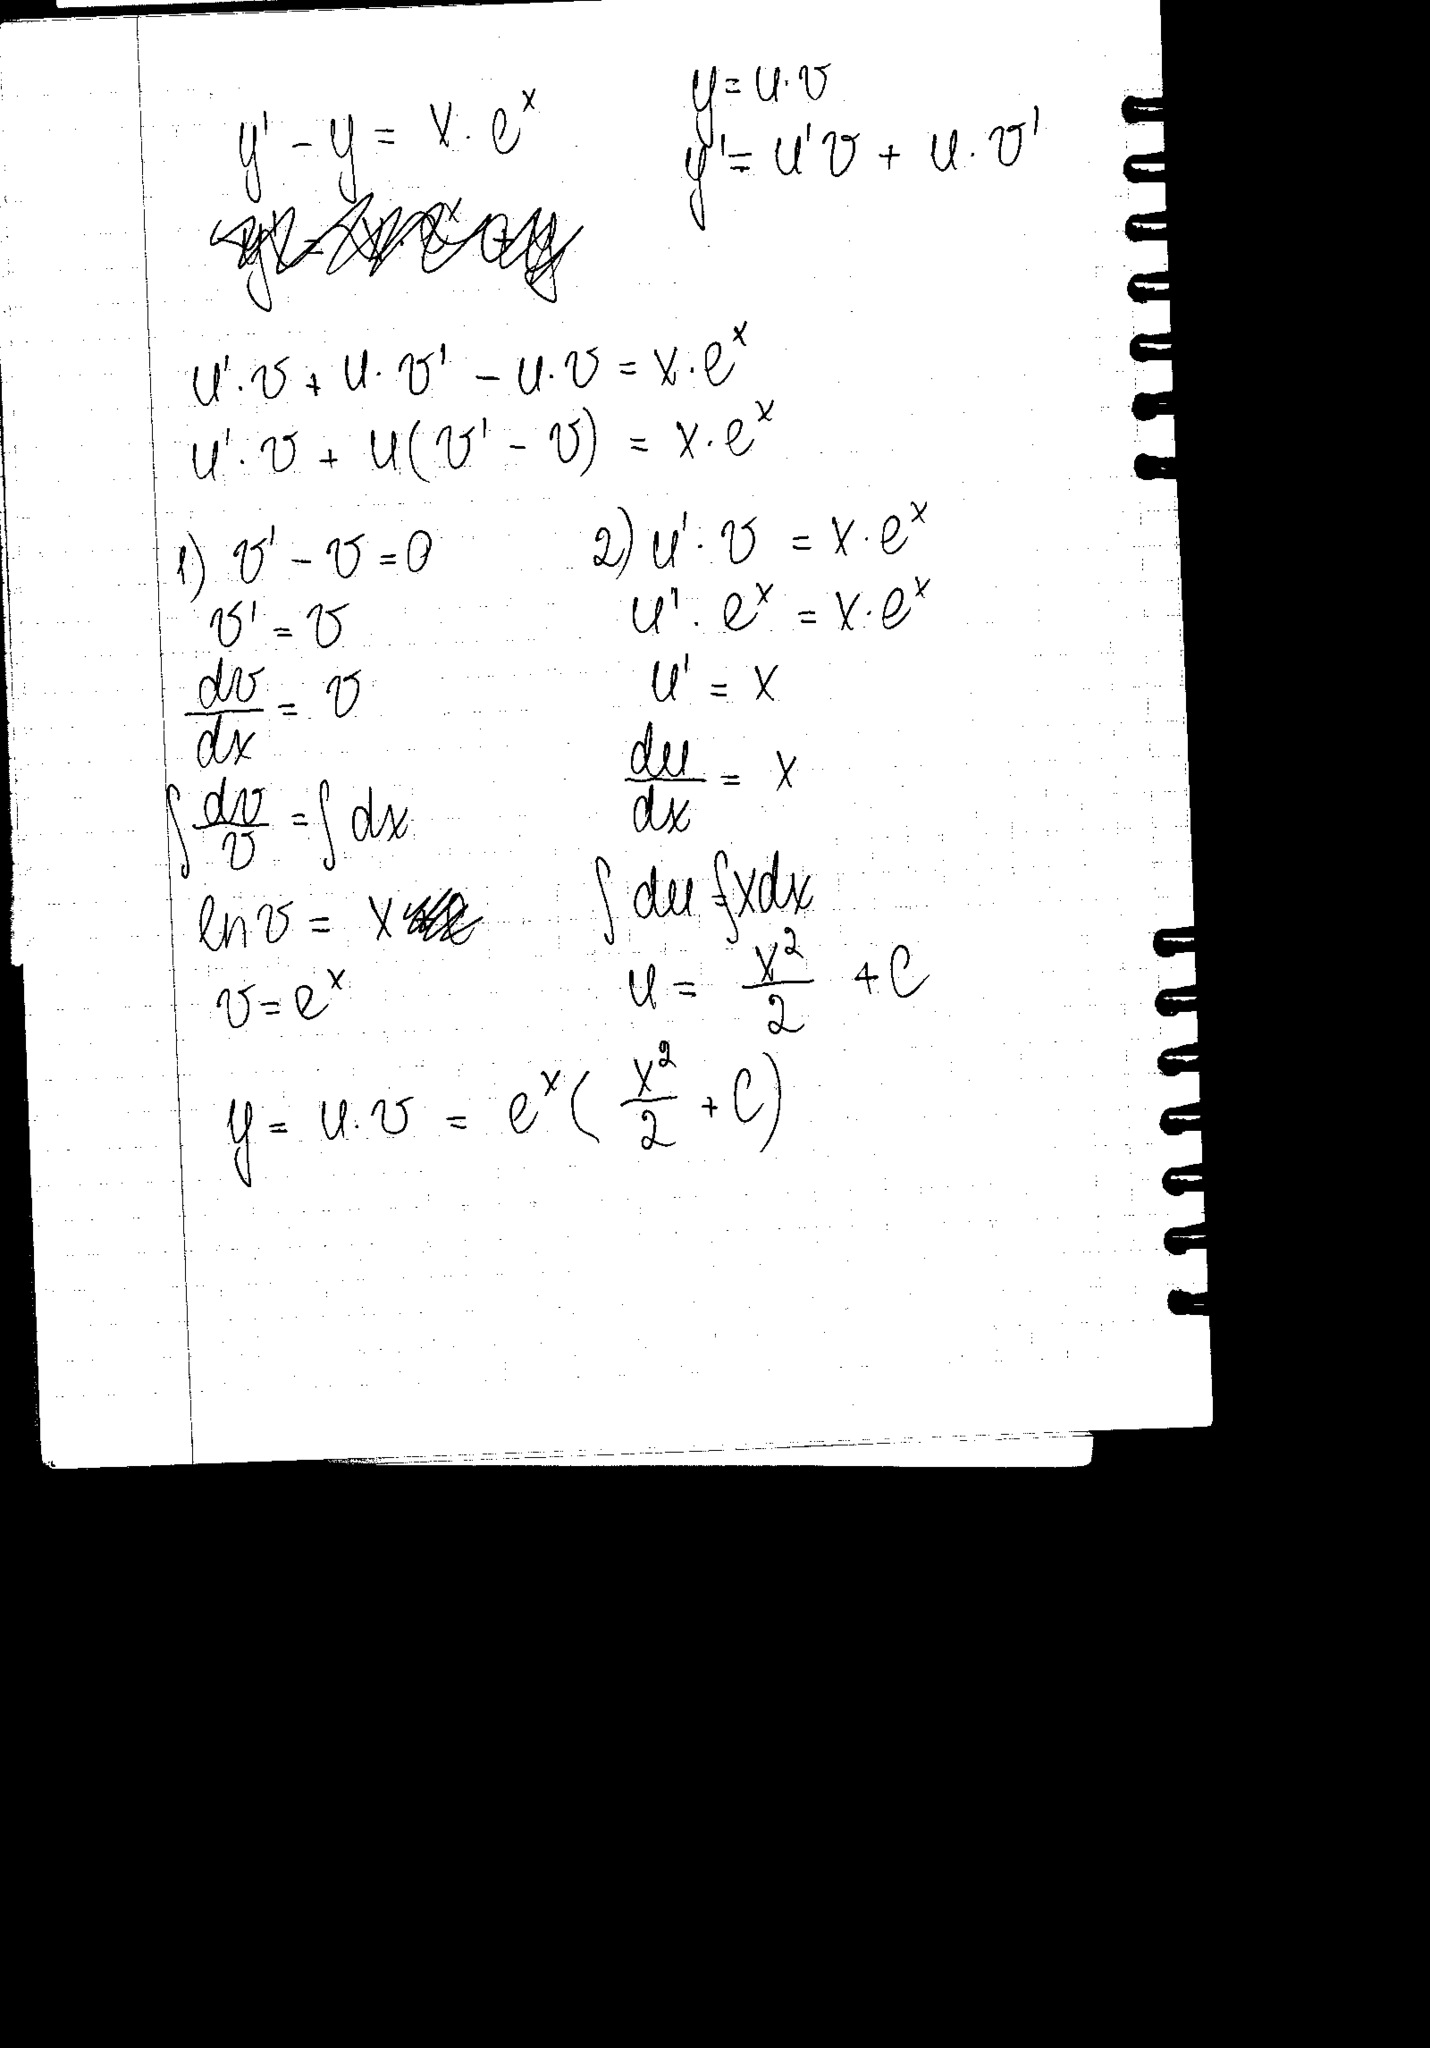 y' - y = x · e^x
y = u · v
y' = u'v + u · v'
u' · v + u · v' - u · v = x · e^x
u' · v + u(v' - v) = x · e^x
1) v' - v = 0
v' = v
dv/dx = v
∫ dv/v = ∫ dx
ln v = x
v = e^x
2) u' · v = x · e^x
u' · e^x = x · e^x
u' = x
du/dx = x
∫ du = ∫ x dx
u = x^2/2 + C
y = u · v = e^x ( x^2/2 + C)